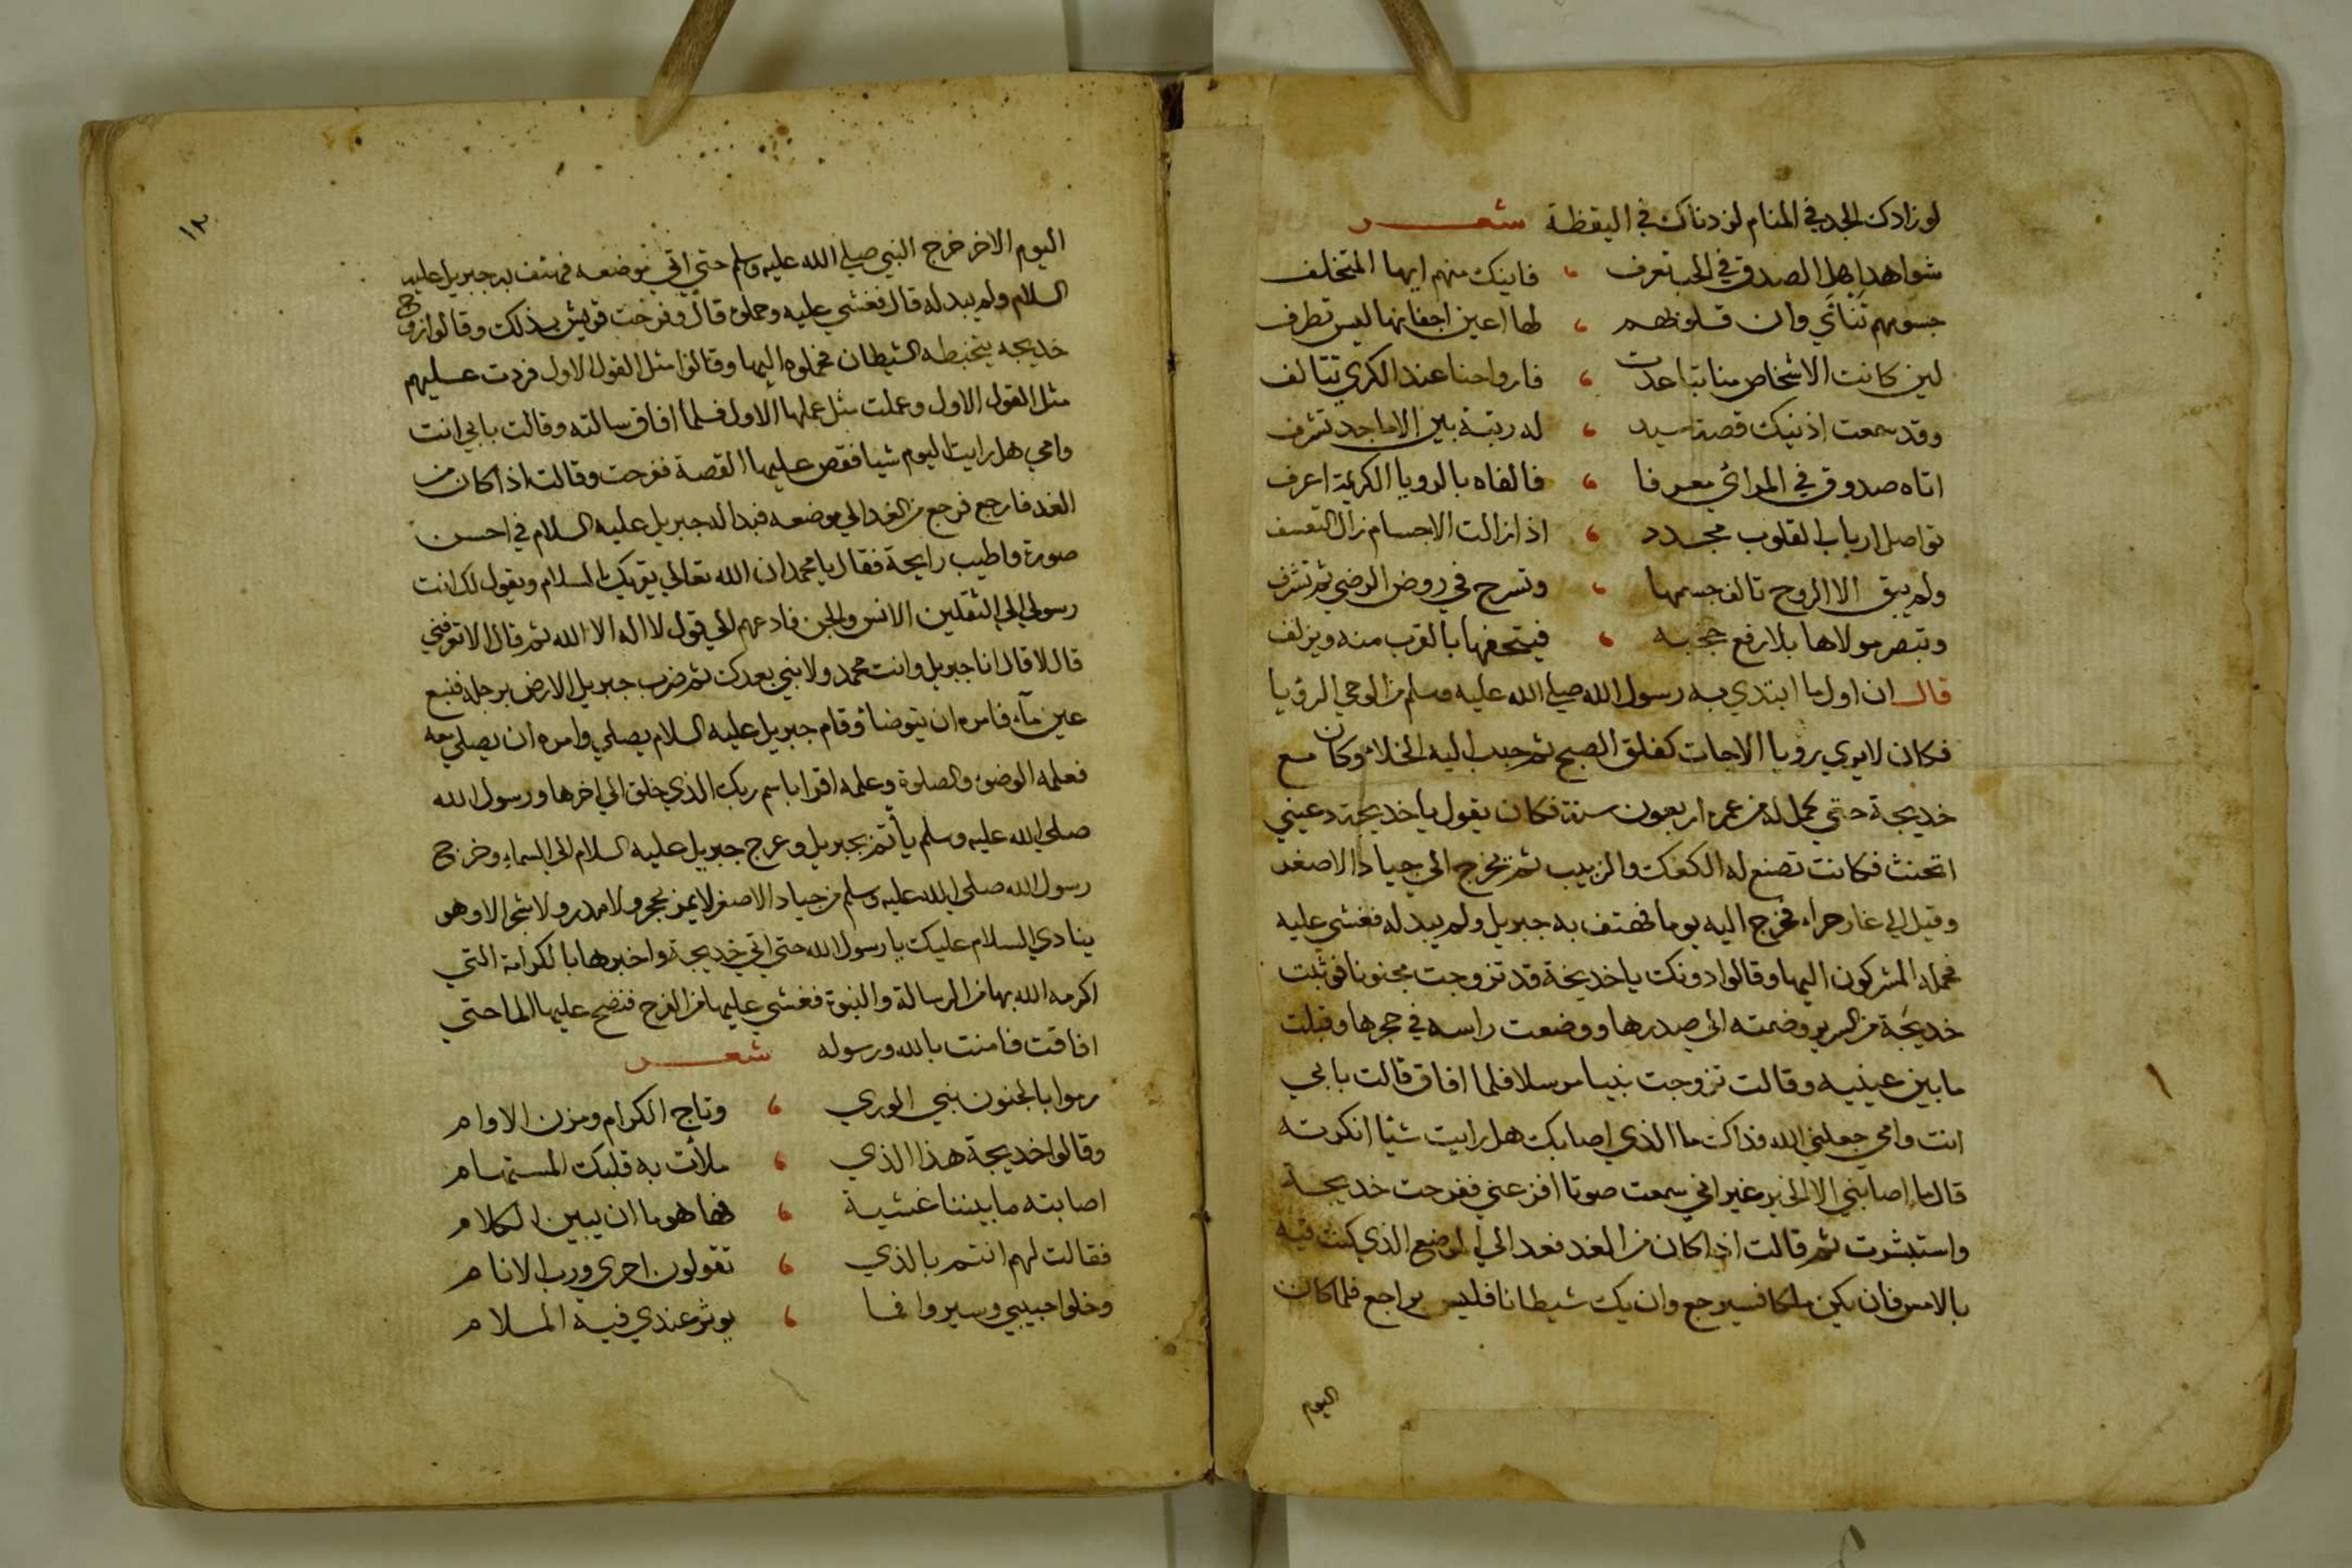 لو زادك الجد في المنام لزدناك في اليقظة شعر
شواهد اهل الصدق في الحب تعرف ، فاينك منهم ايها المتخلف
جسومهم تنائي وان قلوبهم ، لها اعين اجفانها ليس تطرف
لين كانت الاشخاص منا تباعدت ، فارواحنا عند الكري تتالف
وقد سمعت اذنيك قصة سيد ، له رتبة بين الاماجد تشرف
اتاه صدوق في المرائي معرفا ، فالفاه بالرويا الكريمة اعرف
تواصل ارباب القلوب مجدد ، اذا زالت الاجسام زال التعسف
ولم يبق الا الروح تالف جسمها ، وتسرح في روض الرضي ثم تشرف
وتبصر مولاها بلا رفع حجبه ، فيتحفها بالقرب منه ويزلف
قال ان اول ما ابتدي به رسول الله صلي الله عليه وسلم من الوحي الرؤيا
فكان لا يري رويا الا جات كفلق الصبح ثم حبب اليه الخلاء وكان مع
خديجة حتي كمل له من عمره اربعون سنة فكان يقول يا خديجة دعيني
اتحنث فكانت تصنع له الكعك والزبيب ثم يخرج الي جياد الاصغر
وقيل الي غار حراء فخرج اليه يوما فهتف به جبريل ولم يبد له فغشي عليه
فحمله المشركون اليها وقالوا دونك يا خديجة قد تزوجت مجنونا فوثبت
خديجة من السرير وضمته الي صدرها ووضعت راسه في حجرها وقبلت
ما بين عينيه وقالت تزوجت نبيا مرسلا فلما افاق قالت بابي
انت وامي جعلني الله فداك ما الذي اصابك هل رايت شيا انكرته
قال ما اصابني الا الخير غير اني سمعت صوتا افزعني ففرحت خديجة
واستبشرت ثم قالت اذا كان من الغد فعد الي الموضع الذي كنت فيه
بالامس فان يكن ملكا فسيرجع وان يك شيطانا فليس براجع فلما كان
اليوم
١٣
اليوم الاخر خرج النبي صلي الله عليه وسلم حتي اتي موضعه فهتف به جبريل عليه
السلام ولم يبد له قال فغشي عليه وحملوه قال وفرحت قريش بذلك وقالوا زوج
خديجه يتخبطه الشيطان فحملوه اليها وقالوا مثل القول الاول فردت عليهم
مثل القول الاول وعملت مثل عملها الاول فلما افاق سالته وقالت بابي انت
وامي هل رايت اليوم شيا فقص عليها القصة ففرحت وقالت اذا كان من
الغد فارجع فرجع من الغد الي موضعه فبدا له جبريل عليه السلام في احسن
صورة واطيب رايحة فقال يا محمد ان الله تعالي يقريك السلام ويقول لك انت
رسولي الي الثقلين الانس والجن فادعهم الي قول لا اله الا الله ثم قال الا تعرفني
قال لا قال انا جبريل وانت محمد ولا نبي بعدك ثم ضرب جبريل الارض برجله فنبع
عين مآء فامره ان يتوضا وقام جبريل عليه السلام يصلي وامره ان يصلي معه
فعلمه الوضوء والصلوة وعلمه اقرا باسم ربك الذي خلق الي اخرها ورسول الله
صلي الله عليه وسلم يأتم بجبريل وعرج جبريل عليه السلام الي السماء وخرج
رسول الله صلي الله عليه وسلم من جياد الاصغر لا يمر بحجر ولا مدر ولا شجر الا وهو
ينادي السلام عليك يا رسول الله حتي اتي خديجة واخبرها بالكرامة التي
اكرمه الله بها من الرسالة والنبوة فغشي عليها من الفرح فنضح عليها الما حتي
افاقت فامنت بالله ورسوله شعر
رموا بالجنون نبي الوري ، وتاج الكرام ومزن الاوام
وقالوا خديجة هذا الذي ، ملأت به قلبك المستهام
اصابته ما بيننا غشية ، فها هو ما ان يبين الكلام
فقالت لهم انتم بالذي ، تقولون احري ورب الانام
وخلوا حبيبي وسيروا فما ، يوثر عندي فيه الملام